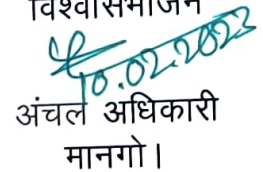 विश्वासभाजन
10.02.2023
अंचल अधिकारी
मानगो।